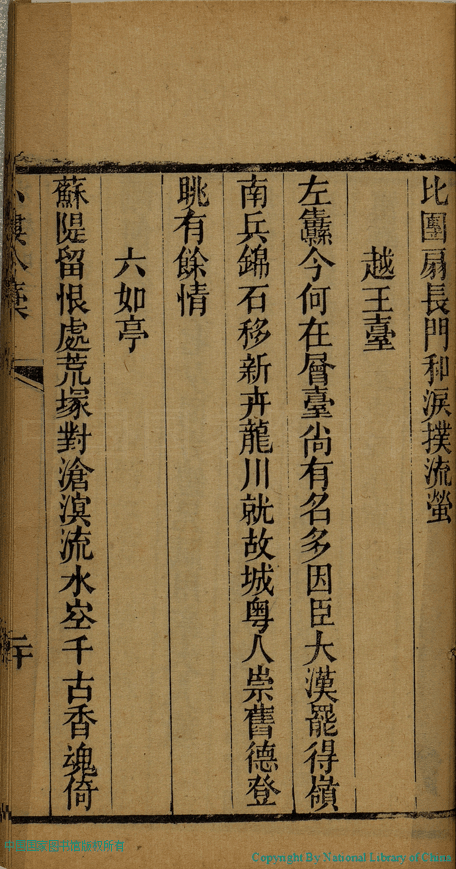 比團扇長門和淚撲流螢
越王臺
左纛今何在層臺尚有名多因臣大漢罷得嶺
南兵錦石移新卉龍川就故城粤人崇舊德登
眺有餘情
六如亭
蘇隄留恨處荒塚對滄溟流水空千古香魂倚
二十
中國國家图书馆版权所有
Copyright By National Library of China